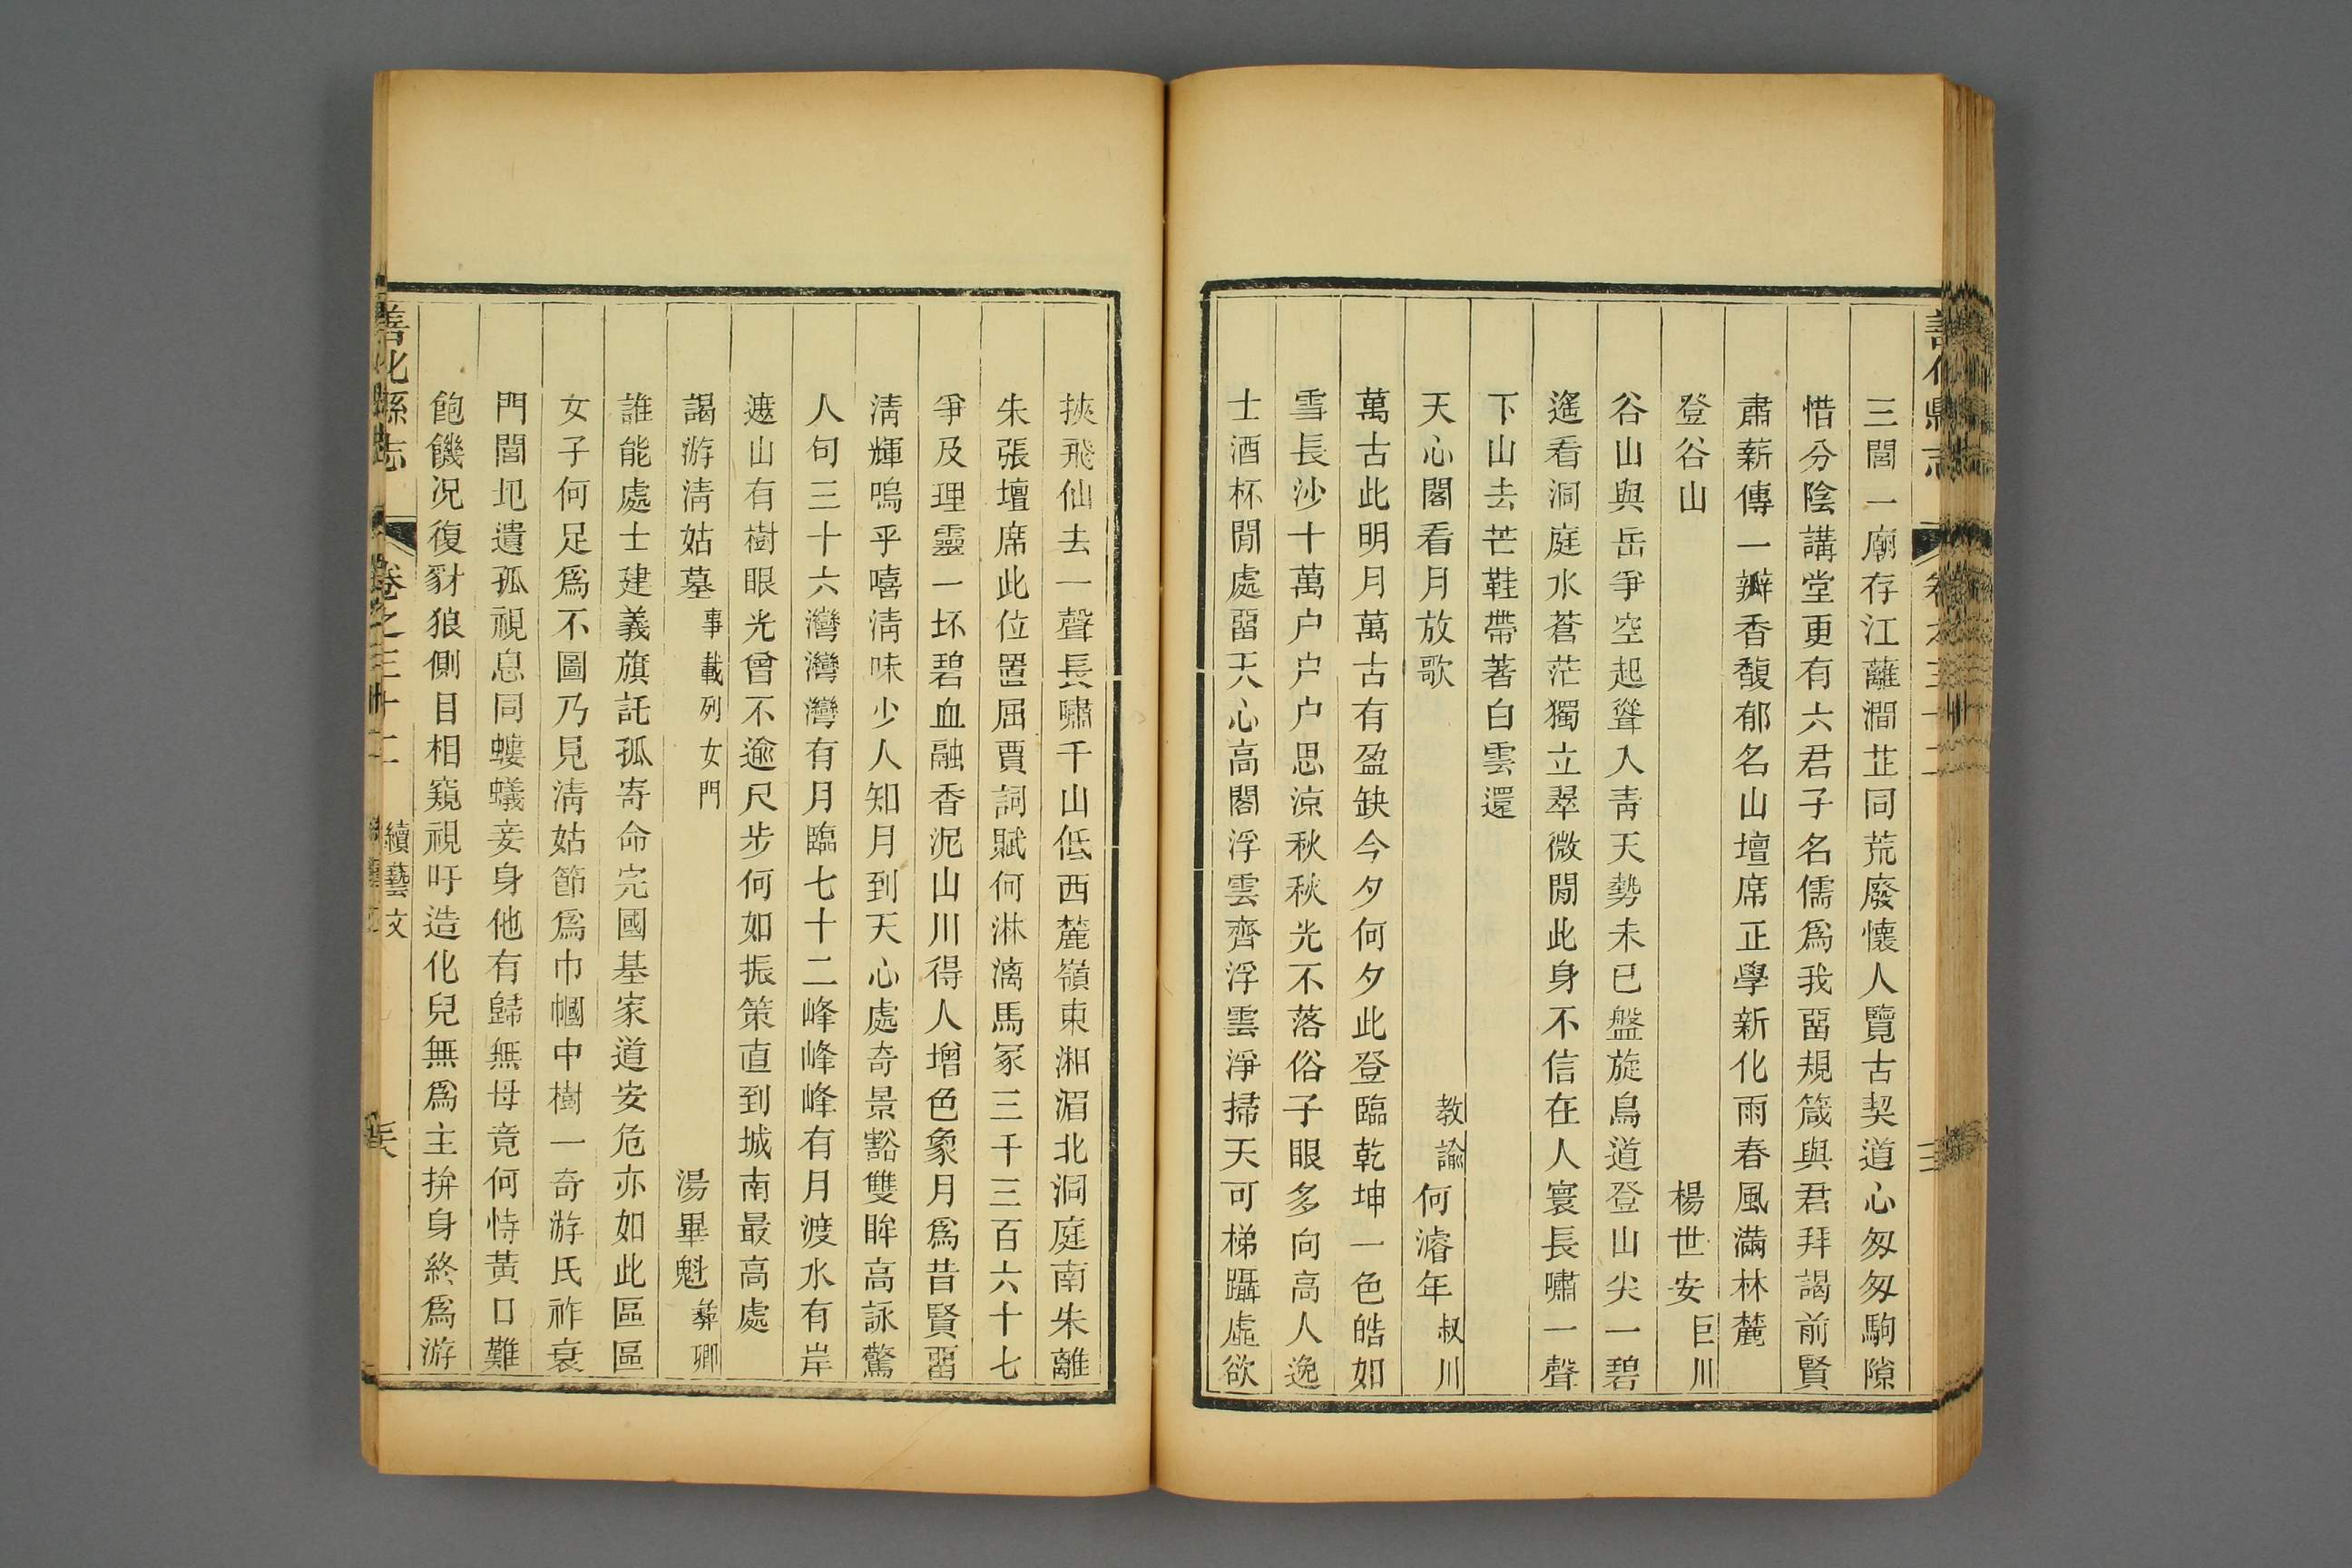 三閭一廟存江蘺澗芷同荒廢懷人覽古契道心匆匆駒隙
惜分陰講堂更有六君子名儒爲我畱規箴與君拜謁前賢
肅薪傳一瓣香馥郁名山壇席正學新化雨春風滿林麓
登谷山 楊世安 巨川
谷山與岳爭空起聳入靑天勢未已盤旋鳥道登山尖一碧
遙看洞庭水蒼茫獨立翠微間此身不信在人寰長嘯一聲
下山去芒鞋帶著白雲還
天心閣看月放歌 教諭 何濬年 叔川
萬古此明月萬古有盈缺今夕何夕此登臨乾坤一色皓如
雪長沙十萬户户户思涼秋秋光不落俗子眼多向高人逸
士酒杯閒處畱天心高閣浮雲齊浮雲淨掃天可梯躡虛欲
挾飛仙去一聲長嘯千山低西麓嶺東湘湄北洞庭南朱離
朱張壇席此位置屈賈詞賦何淋漓馬冢三千三百六十七
爭及理靈一坏碧血融香泥山川得人增色象月爲昔賢畱
淸輝嗚乎嘻淸味少人知月到天心處奇景豁雙眸高詠驚
人句三十六灣灣灣有月臨七十二峰峰峰有月渡水有岸
遮山有樹眼光曾不逾尺步何如振策直到城南最高處
謁游淸姑墓 事載列女門 湯畢魁 彝卿
誰能處士建義旗託孤寄命完國基家道安危亦如此區區
女子何足爲不圖乃見淸姑節爲巾幗中樹一奇游氏祚衰
門閭圯遺孤視息同螻蟻妾身他有歸無母竟何恃黃口難
飽饑况復豺狼側目相窺視吁造化兒無爲主拚身終爲游
善化縣志 卷之三十二 續藝文